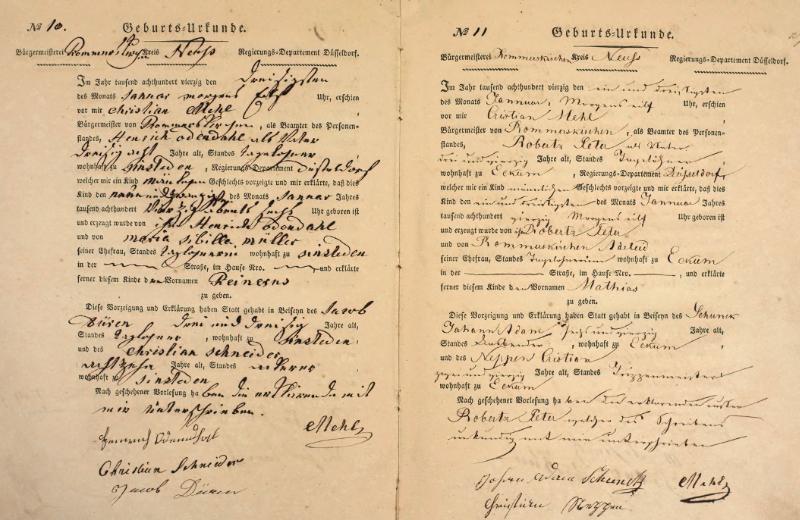 № 10.
Geburts-Urkunde.
Bürgermeisterei Rommerskirchen Kreis Neuss Regierungs-Departement Düsseldorf.
Im Jahr tausend achthundert vierzig den dreisigsten
des Monats Januar morgens Uhr, erschien
vor mir Christian Mehl
Bürgermeister von Rommerskirchen, als Beamter des Personen-
standes, Henrich Odendahl als Vater
dreizig acht Jahre alt, Standes taglohner
wohnhaft zu Sinsteden, Regierungs-Departement Düsseldorf
welcher mir ein Kind Geschlechts vorzeigte und mir erklärte, daß dies
Kind den neun und zwanzigst des Monats Januar Jahres
tausend achthundert vierzig abents Uhr geboren ist
und erzeugt wurde von Henrich Odendahl
und von maria sibilla müller
seiner Ehefrau, Standes taglonerin wohnhaft zu sinsteden
in der Straße, im Hause Nro. und erklärte
ferner diesem Kinde den Vornamen Reinerus
zu geben.
Diese Vorzeigung und Erklärung haben Statt gehabt in Beiseyn des Jacob
Düren drei und dreisig Jahre alt,
Standes taglohner, wohnhaft zu sinsteden
und des Christian Schneider
achtzehn Jahre alt, Standes ackerer
wohnhaft zu sinsteden
Nach geschehener Vorlesung haben die erklärende mit
mir unterschrieben.
Heinrich Odendahl
Mehl
Christian Schneider
Jacob Düren
№ 11
Geburts-Urkunde.
Bürgermeisterei Rommerskirchen Kreis Neuss Regierungs-Departement Düsseldorf.
Im Jahr tausend achthundert vierzig den ein und dreisigsten
des Monats Januar, Morgens eilf Uhr, erschien
vor mir Cristian Mehl
Bürgermeister von Rommerskirchen, als Beamter des Personen-
standes, Robertz Peter als Vater
drei und vierzig Jahre alt, Standes Tagelöhner
wohnhaft zu Eckum, Regierungs-Departement Düsseldorf
welcher mir ein Kind männlichen Geschlechts vorzeigte und mir erklärte, daß dies
Kind den ein und dreisigsten des Monats Januar Jahres
tausend achthundert vierzig Morgens Uhr geboren ist
und erzeugt wurde von Robertz Peter
und von Rommerskirchen
seiner Ehefrau, Standes Tagelöhnerin wohnhaft zu Eckum
in der Straße, im Hause Nro. und erklärte
ferner diesem Kinde den Vornamen Mathias
zu geben.
Diese Vorzeigung und Erklärung haben Statt gehabt in Beiseyn des
Johann Adam und vierzig Jahre alt,
Standes, wohnhaft zu Eckum
und des Neppen Cristian
und vierzig Jahre alt, Standes
wohnhaft zu Eckum
Nach geschehener Vorlesung haben die erklärenden
Robertz Peter welcher des Schreibens
unkundig mit mir unterschrieben
Johann Adam
Mehl
Christian Neppen